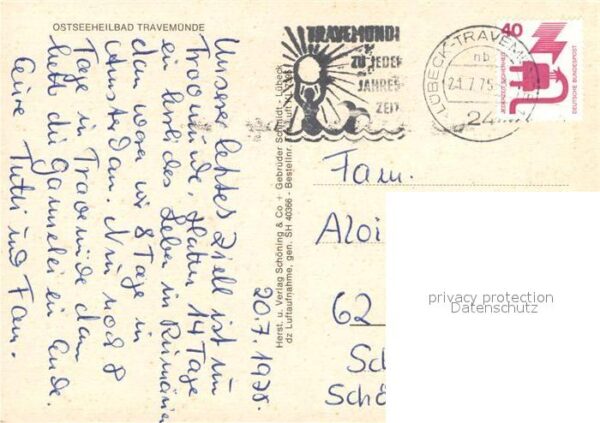 OSTSEEHEILBAD TRAVEMÜNDE
Unsere letztes Ziell ist im
Travemünde. Hatten 14 Tage
ein herrliches Leben in Rumänien
dan waren wir 8 Tage in
Amsterdam. Nun noch 8
Tage in Travemünde dan
hatt die Gammelei ein Ende.
Eure Tutti und Fam.
20.7.1975.
Herst. u. Verlag Schöning & Co + Gebrüder Schmidt - Lübeck
dz Luftaufnahme, gen. SH 40366 - Bestellnr.
TRAVEMÜNDE
ZU JEDER
JAHRES-
ZEIT
LÜBECK-TRAVEMÜNDE
nb
21.7.75
24
40
JEDERZEIT SICHERHEIT
DEUTSCHE BUNDESPOST
Fam.
Aloi
62
Sc
Schö
privacy protection
Datenschutz